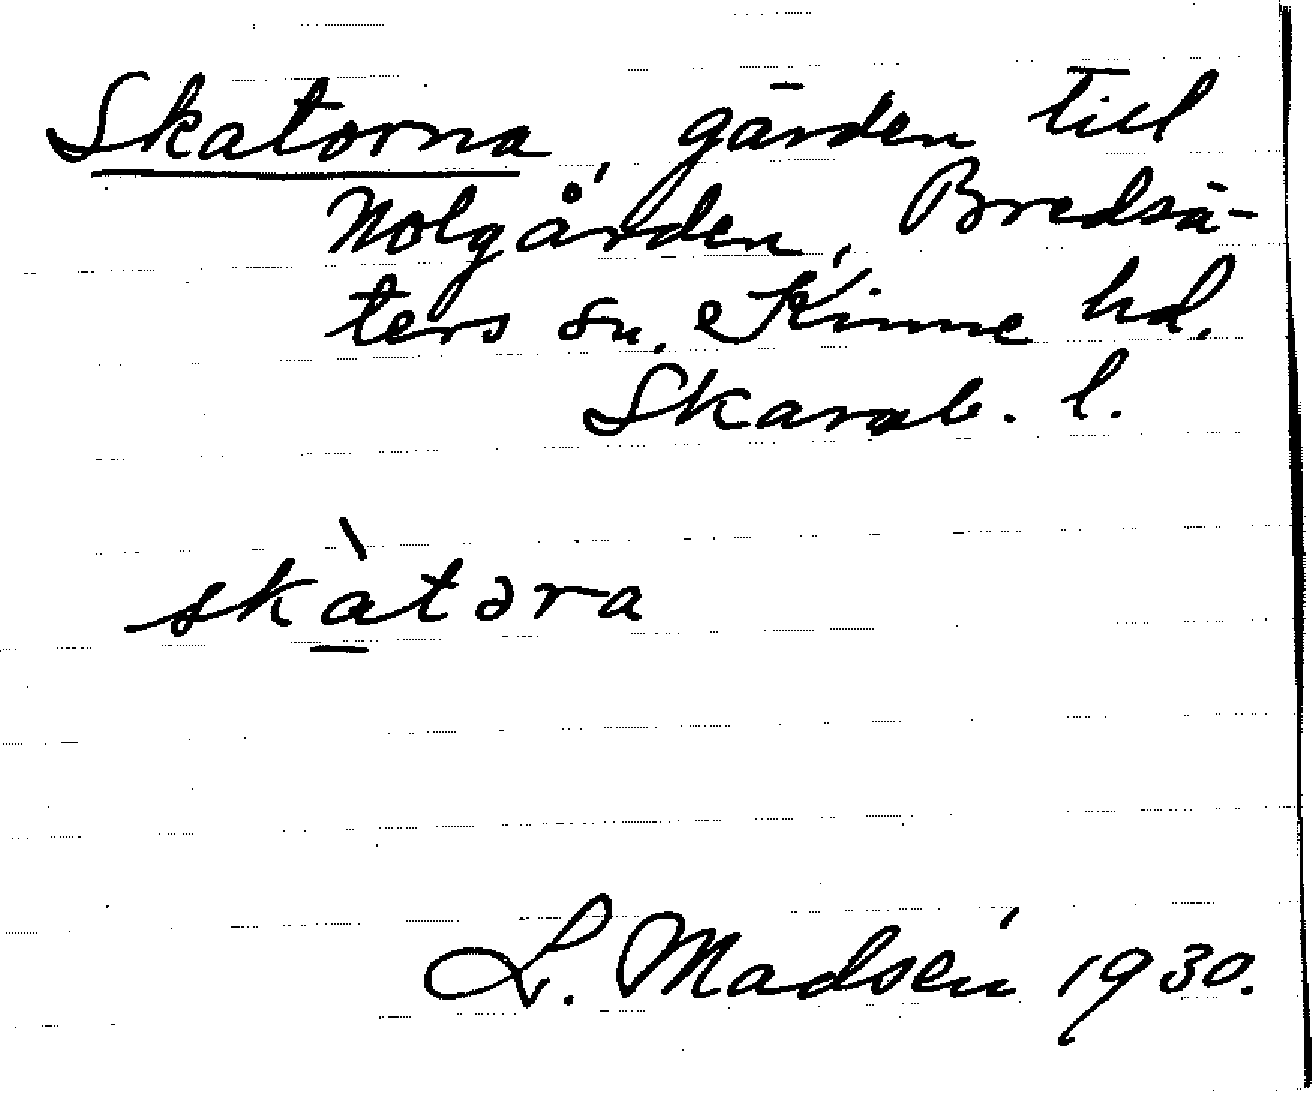 Skatorna, gärden till
Nolgården, Bredsä-
ters sn, Kinne hd.
Skarab. l.
skàtəra
L. Madsén 1930.